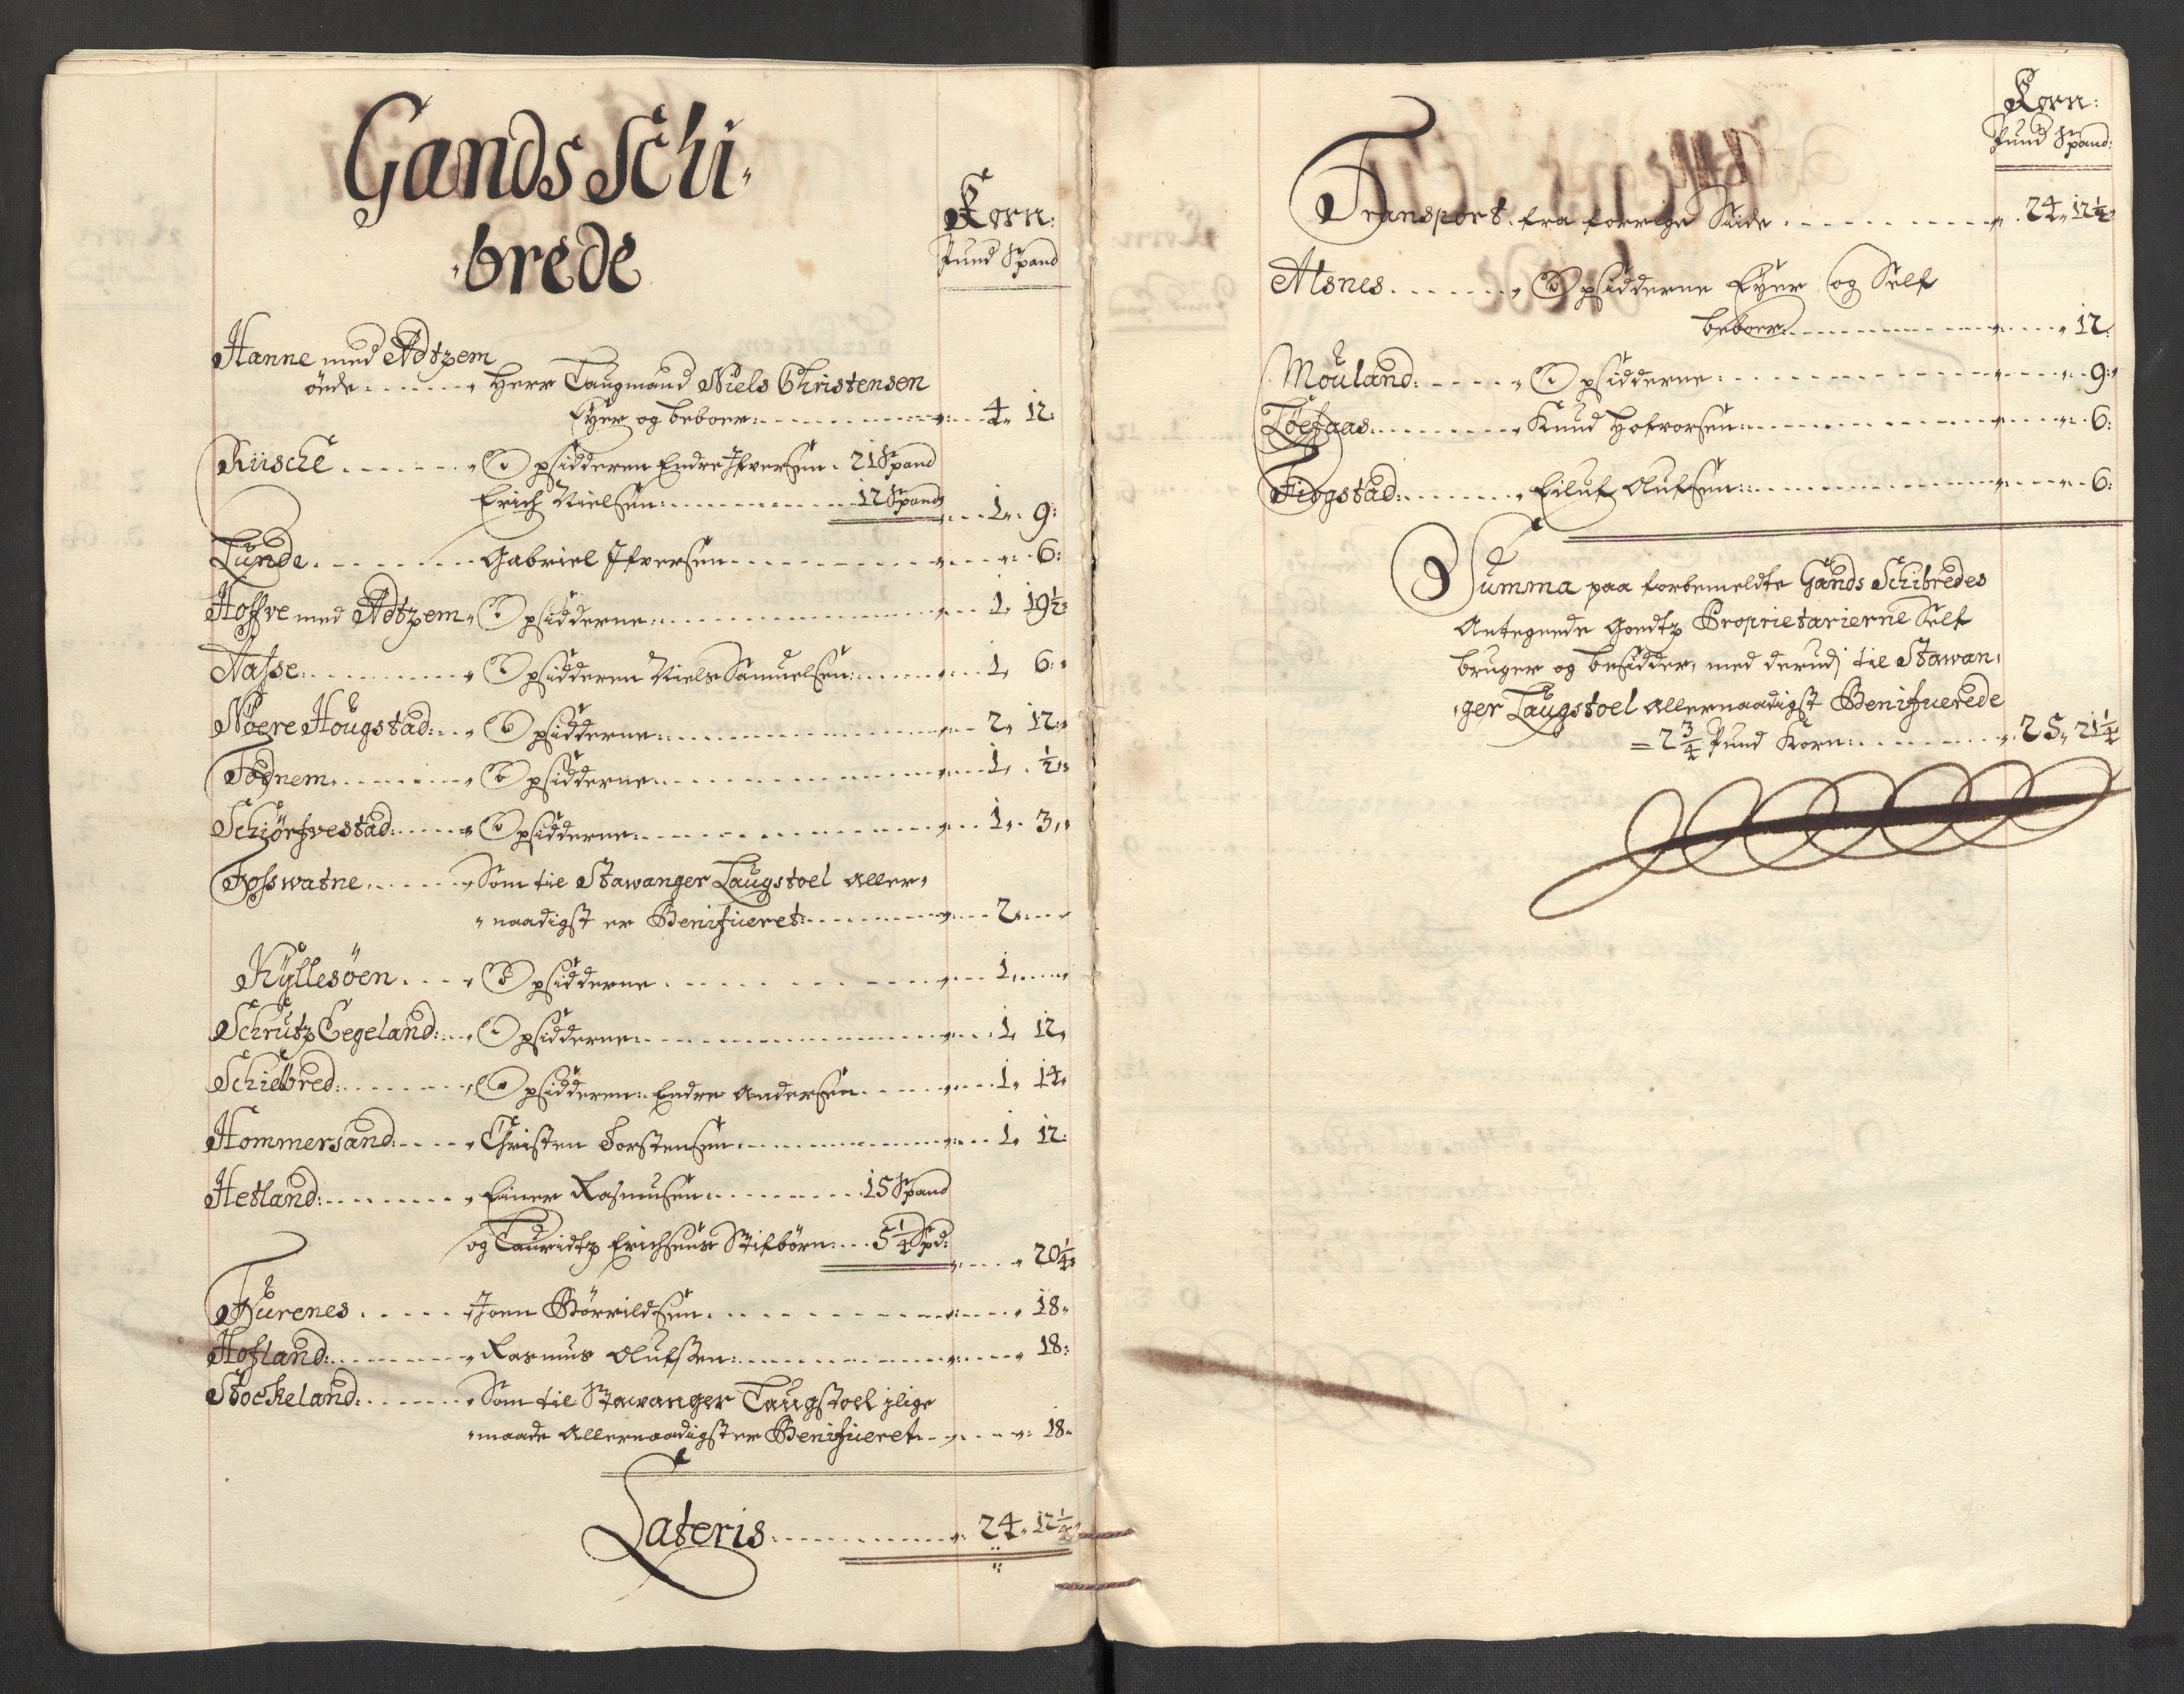 Gands Schi-
brede
Korn:
Pund Spand
Hanne med Ødtzem
øede ....... Herr Laugmand Niels Christensen
Eyer og beboer: ....... 4, 12:
Riische ....... Opsidderen Endre Ifversen. 21 Spand
Erich Nielsen: ....... 12 Spand ... 1, 9:
Lunde ....... Gabriel Ifversen ....... 6:
Hoffve med Ødtzem, Opsidderne: ....... 1, 19½:
Aasse ....... Opsidderen Niels Samuelsen: ....... 1, 6:
Nøere Hougstad: ... Opsidderne: ....... 2, 12:
Fognem ....... Opsidderne ....... 1, ½:
Schiörfvestad: ....... Opsidderne: ....... 1, 3,
Fosswatne ....... Som til Stawanger Laugstoel aller-
naadigst er Benificeret: ....... 2,
Kyllesöen .... Opsidderne ....... 1,
Schrutz Eegeland: ... Opsidderne: ....... 1, 12,
Schielbred: ....... Opsidderen: Endre Andersen ....... 1, 14,
Hommersand: ..... Christen Torstensen ....... 1, 12:
Hetland: ....... Einer Rasmusen: ....... 15 Spand
og Lauridtz Erichsens Stifbørn: ... 5¼ Spd: ....... 20¼:
Furenes ....... Joen Børrildsen ....... 18,
Hofland: ....... Rasmus Olufsen: ....... 18:
Stockeland: ....... Som til Stawanger Laugstoel jlige
maade Allernaadigst er Benificeret ....... 18,
Lateris: ....... 24, 12¼
Korn:
Pund Spand:
Transport fra forrige Side ....... 24, 12¼
Alsnes ....... Opsidderne Eyer og Self
beboer ....... 12,
Mouland: ..... Opsidderne: ....... 9:
Knud ....... 6:
Fiogstad: ....... Eiluf Olufsen: ....... 6:
Summa paa forbemeldte Gands Schibredes
Antegnede Goedtz Proprietarierne Self
bruger og besidder, med derudj til Stawan-
ger Laugstoel allernaadigst Benificerede
= 2¾ Pund Korn: ....... 25, 21¼